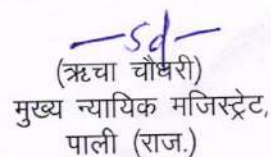 —sd—
(ऋचा चौधरी)
मुख्य न्यायिक मजिस्ट्रेट,
पाली (राज.)